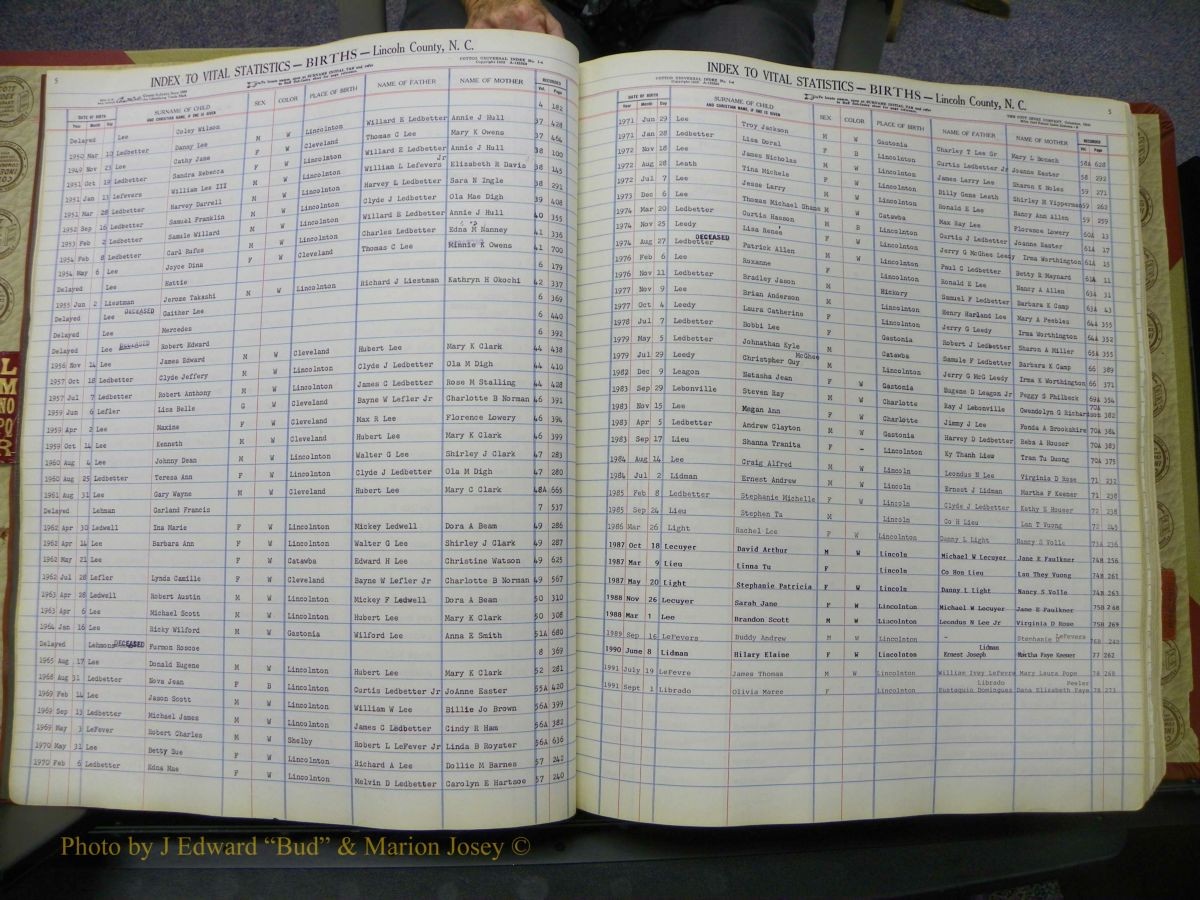 5
INDEX TO VITAL STATISTICS — BIRTHS — Lincoln County, N. C.
COTTON UNIVERSAL INDEX No.
DATE OF BIRTH
Year Month Day
SURNAME OF CHILD
AND CHRISTIAN NAME, IF ONE IS GIVEN
SEX
COLOR
PLACE OF BIRTH
NAME OF FATHER
NAME OF MOTHER
RECORDED
Vol. Page
Delayed Lee Coley Wilson 4 182
1950 Mar 10 Ledbetter Danny Lee M W Lincolnton Willard E Ledbetter Annie J Hull 37 428
1949 Nov 23 Lee Cathy Jane F W Cleveland Thomas C Lee Mary K Owens 37 464
1951 Oct 19 Ledbetter Sandra Rebecca F W Lincolnton Willard E Ledbetter Annie J Hull 38 100
1951 Jan 13 Lefevers William Lee III M W Lincolnton William L Lefevers Jr Elizabeth R Davis 38 145
1951 Mar 28 Ledbetter Harvey Darrell M W Lincolnton Harvey L Ledbetter Sara N Ingle 38 291
1952 Sep 16 Ledbetter Samuel Franklin M W Lincolnton Clyde J Ledbetter Ola Mae Digh 39 408
1953 Feb 2 Ledbetter Samule Willard M W Lincolnton Willard E Ledbetter Annie J Hull 40 355
1954 Feb 8 Ledbetter Carl Rufus M W Lincolnton Charles Ledbetter Edna M Nanney 41 336
1954 May 6 Lee Joyce Dina F W Cleveland Thomas C Lee Minnie K Owens 41 700
Delayed Lee Hattie 6 179
1955 Jun 2 Liestman Jeroze Takashi M W Lincolnton Richard J Liestman Kathryn H Okochi 42 337
Delayed Lee DECEASED Gaither Lee 6 369
Delayed Lee Mercedes 6 440
Delayed Lee DECEASED Robert Edward 6 392
1956 Nov 14 Lee James Edward M W Cleveland Hubert Lee Mary K Clark 44 438
1957 Oct 18 Ledbetter Clyde Jeffery M W Lincolnton Clyde J Ledbetter Ola M Digh 44 410
1957 Jul 7 Ledbetter Robert Anthony M W Lincolnton James C Ledbetter Rose M Stalling 44 428
1959 Jun 6 Lefler Lisa Belle G W Cleveland Bayne W Lefler Jr Charlotte B Norman 46 391
1959 Apr 2 Lee Maxine F W Cleveland Max R Lee Florence Lowery 46 394
1959 Oct 14 Lee Kenneth M W Cleveland Hubert Lee Mary K Clark 46 399
1960 Aug 4 Lee Johnny Dean M W Lincolnton Walter G Lee Shirley J Clark 47 283
1960 Aug 25 Ledbetter Teresa Ann F W Lincolnton Clyde J Ledbetter Ola M Digh 47 280
1961 Aug 31 Lee Gary Wayne M W Cleveland Hubert Lee Mary C Clark 48A 665
Delayed Lehman Garland Francis 7 537
1962 Apr 30 Ledwell Ina Marie F W Lincolnton Mickey Ledwell Dora A Beam 49 286
1962 Apr 14 Lee Barbara Ann F W Lincolnton Walter G Lee Shirley J Clark 49 287
1962 May 21 Lee F W Catawba Edward H Lee Christine Watson 49 625
1962 Jul 28 Lefler Lynda Camille F W Cleveland Bayne W Lefler Jr Charlotte B Norman 49 567
1963 Apr 28 Ledwell Robert Austin M W Lincolnton Mickey F Ledwell Dora A Beam 50 310
1963 Apr 6 Lee Michael Scott M W Lincolnton Hubert Lee Mary K Clark 50 308
1964 Jan 16 Lee Ricky Wilford M W Gastonia Wilford Lee Anna E Smith 51A 680
Delayed DECEASED Furmon Roscoe 8 369
1965 Aug 17 Lee Donald Eugene M W Lincolnton Hubert Lee Mary K Clark 52 281
1968 Aug 31 Ledbetter Nova Jean F B Lincolnton Curtis Ledbetter Jr JoAnne Easter 55A 420
1969 Feb 14 Lee Jason Scott M W Lincolnton William W Lee Billie Jo Brown 56A 399
1969 Sep 13 Ledbetter Michael James M W Lincolnton James C Ledbetter Cindy R Ham 56A 382
1969 May 3 LeFever Robert Charles M W Shelby Robert L LeFever Jr Linda B Royster 56A 636
1970 May 31 Lee Betty Sue F W Lincolnton Richard A Lee Dollie M Barnes 57 242
1970 Feb 6 Ledbetter Edna Mae F W Lincolnton Melvin D Ledbetter Carolyn E Hartsoe 57 240
INDEX TO VITAL STATISTICS — BIRTHS — Lincoln County, N. C.
5
COTTON UNIVERSAL INDEX No.
DATE OF BIRTH
Year Month Day
SURNAME OF CHILD
AND CHRISTIAN NAME, IF ONE IS GIVEN
SEX
COLOR
PLACE OF BIRTH
NAME OF FATHER
NAME OF MOTHER
RECORDED
Vol. Page
1971 Jun 29 Lee Troy Jackson M W Gastonia Charley T Lee Sr Mary L 58A 628
1971 Jan 28 Ledbetter Lisa Doral F B Lincolnton Curtis Ledbetter Jr Joanne Easter 58 292
1972 Nov 18 Lee James Nicholas M W Lincolnton James Larry Lee Sharon K Holes 59 271
1972 Aug 28 Leath Tina Michele F W Lincolnton Billy Gene Leath Shirley H Vipperman 59 262
1972 Jul 7 Lee Jesse Larry M W Lincolnton Ronald E Lee Nancy Ann Allen 59 259
1973 Dec 6 Lee Thomas Michael Shane M W Catawba Max Ray Lee Florence Lowery 60A 13
1974 Mar 20 Ledbetter Curtis Hasson M B Lincolnton Curtis J Ledbetter Joanne Easter 61A 17
1974 Nov 25 Leedy Lisa Renee F W Lincolnton Jerry G McGhee Leedy Irma Worthington 61A 15
1974 Aug 27 Ledbetter DECEASED Patrick Allen M W Lincolnton Paul C Ledbetter Betty R Maynard 61A 11
1976 Feb 6 Lee Roxanne F Lincolnton Ronald E Lee Nancy A Allen 63A 31
1976 Nov 11 Ledbetter Bradley Jason M Hickory Samuel F Ledbetter Barbara K Camp 63A 43
1977 Nov 9 Lee Brian Anderson M Lincolnton Henry Harland Lee Mary A Peebles 64A 355
1977 Oct 4 Leedy Laura Catherine F Gastonia Jerry G Leedy Irma Worthington 64A 352
1978 Jul 7 Ledbetter Bobbi Lee F Lincolnton Robert J Ledbetter Sharon A Miller 65A 355
1979 May 5 Ledbetter Johnathan Kyle M Catawba Samule F Ledbetter Barbara K Camp 66 389
1979 Jul 29 Leedy Christopher Guy McGhee M Lincolnton Jerry G McG Leedy Irma K Worthington 66 371
1982 Dec 9 Leagon Natasha Jean F W Gastonia Eugene D Leagon Jr Peggy S Philbeck 69A 354
1983 Sep 29 Lebonville Steven Ray M W Charlotte Ray J Lebonville Gwendolyn G Richardson 70A 382
1983 Nov 15 Lee Megan Ann F W Charlotte Jimmy J Lee Fonda A Brookshire 70A 384
1983 Apr 5 Ledbetter Andrew Clayton M W Gastonia Harvey D Ledbetter Reba A Houser 70A 383
1983 Sep 17 Lieu Shanna Tranita F - Lincolnton Ky Thanh Liew Tran Tu Duong 70A 375
1984 Aug 14 Lee Craig Alfred M W Lincoln Leondus N Lee Virginia D Rose 71 252
1984 Jul 2 Lidman Ernest Andrew M W Lincoln Ernest J Lidman Martha F Keener 71 258
1985 Feb 8 Ledbetter Stephanie Michelle F W Lincoln Clyde J Ledbetter Kathy S Houser 72 258
1985 Sep 24 Lieu Stephen Ta M Lincoln Co H Lieu Lan T Vuong 72 249
1986 Mar 26 Light Rachel Lee F W Lincolnton Danny L Light Nancy S Volle 73A 236
1987 Oct 18 Lecuyer David Arthur M W Lincoln Michael W Lecuyer Jane E Faulkner 74B 256
1987 Mar 9 Lieu Linna Tu F Lincoln Co Hon Lieu Lan They Vuong 74B 261
1987 May 20 Light Stephanie Patricia F W Lincoln Danny L Light Nancy S Volle 74B 263
1988 Nov 26 Lecuyer Sarah Jane F W Lincolnton Michael W Lecuyer Jane E Faulkner 75B 268
1988 Mar 1 Lee Brandon Scott M W Lincolnton Leondus N Lee Jr Virginia D Rose 75B 269
1989 Sep 16 LeFevers Buddy Andrew M W Lincolnton - Stephanie LeFevers 76B 240
1990 June 8 Lidman Hilary Elaine F W Lincolnton Ernest Joseph Lidman Martha Faye Keener 77 262
1991 July 19 LeFevre James Thomas M W Lincolnton William Ivey LeFevre Mary Laura Pope 78 268
1991 Sept 1 Librado Olivia Maree F Lincolnton Eustaquio Domingues Librado Dana Elizabeth Faye Peeler 78 273
Photo by J Edward “Bud” & Marion Josey ©